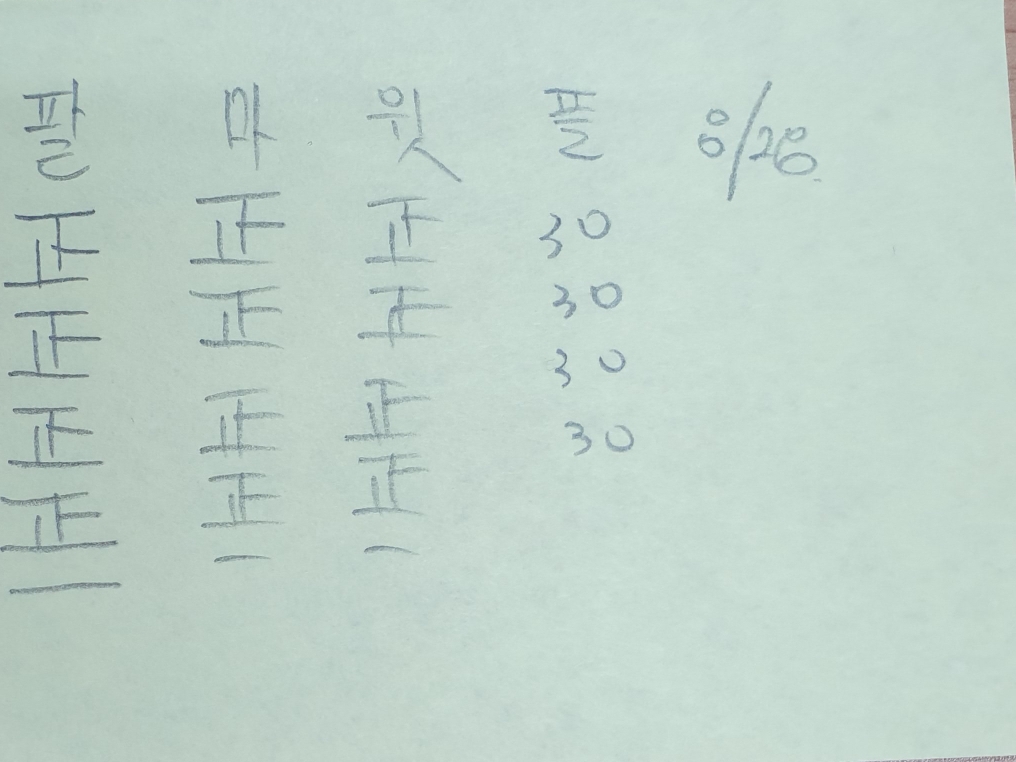 팔 마 윗 플 8/28
正 正 正 30
正 正 正 30
正 正 正 30
正 正 正 30
一 一 一